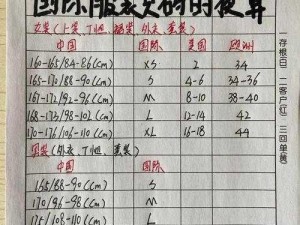 国际服装尺码的换算
女装(上装、T恤、裙装、外衣、套装)
中国 国际 美国 欧洲
160-165/84-86(Cm) XS 2 34
165-170/88-90(Cm) S 4-6 34-36
167-172/92-96(Cm) M 8-10 38-40
168-173/98-102(Cm) L 12-14 42
170-176/106-110(Cm) XL 16-18 44
男装(外衣、T恤、套装)
中国 国际
165/88-90(Cm) S
170/96-98(Cm) M
175/108-110(Cm) L
一存根(白) 二客户(红) 三回单(黄)